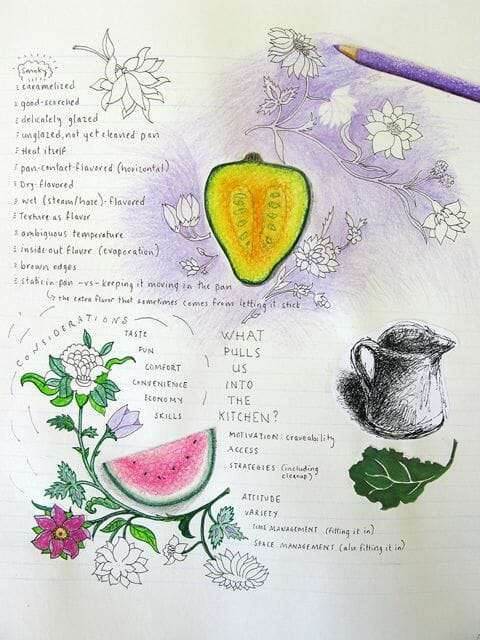 Smoky
caramelized
good-scorched
delicately glazed
unglazed, not yet cleaned pan
Heat itself
pan-contact-flavored (horizontal)
Dry-flavored
wet (steam/hose)-flavored
Texture as flavor
ambiguous temperature
inside-out flavor (evaporation)
brown edges
static in pan -vs- keeping it moving in the pan
↳ the extra flavor that sometimes comes from letting it stick
CONSIDERATIONS
TASTE
FUN
COMFORT
CONVENIENCE
ECONOMY
SKILLS
WHAT
PULLS
US
INTO
THE
KITCHEN?
MOTIVATION: craveability
ACCESS
STRATEGIES (including
cleanup)
ATTITUDE
VARIETY
TIME MANAGEMENT (fitting it in)
SPACE MANAGEMENT (also fitting it in)